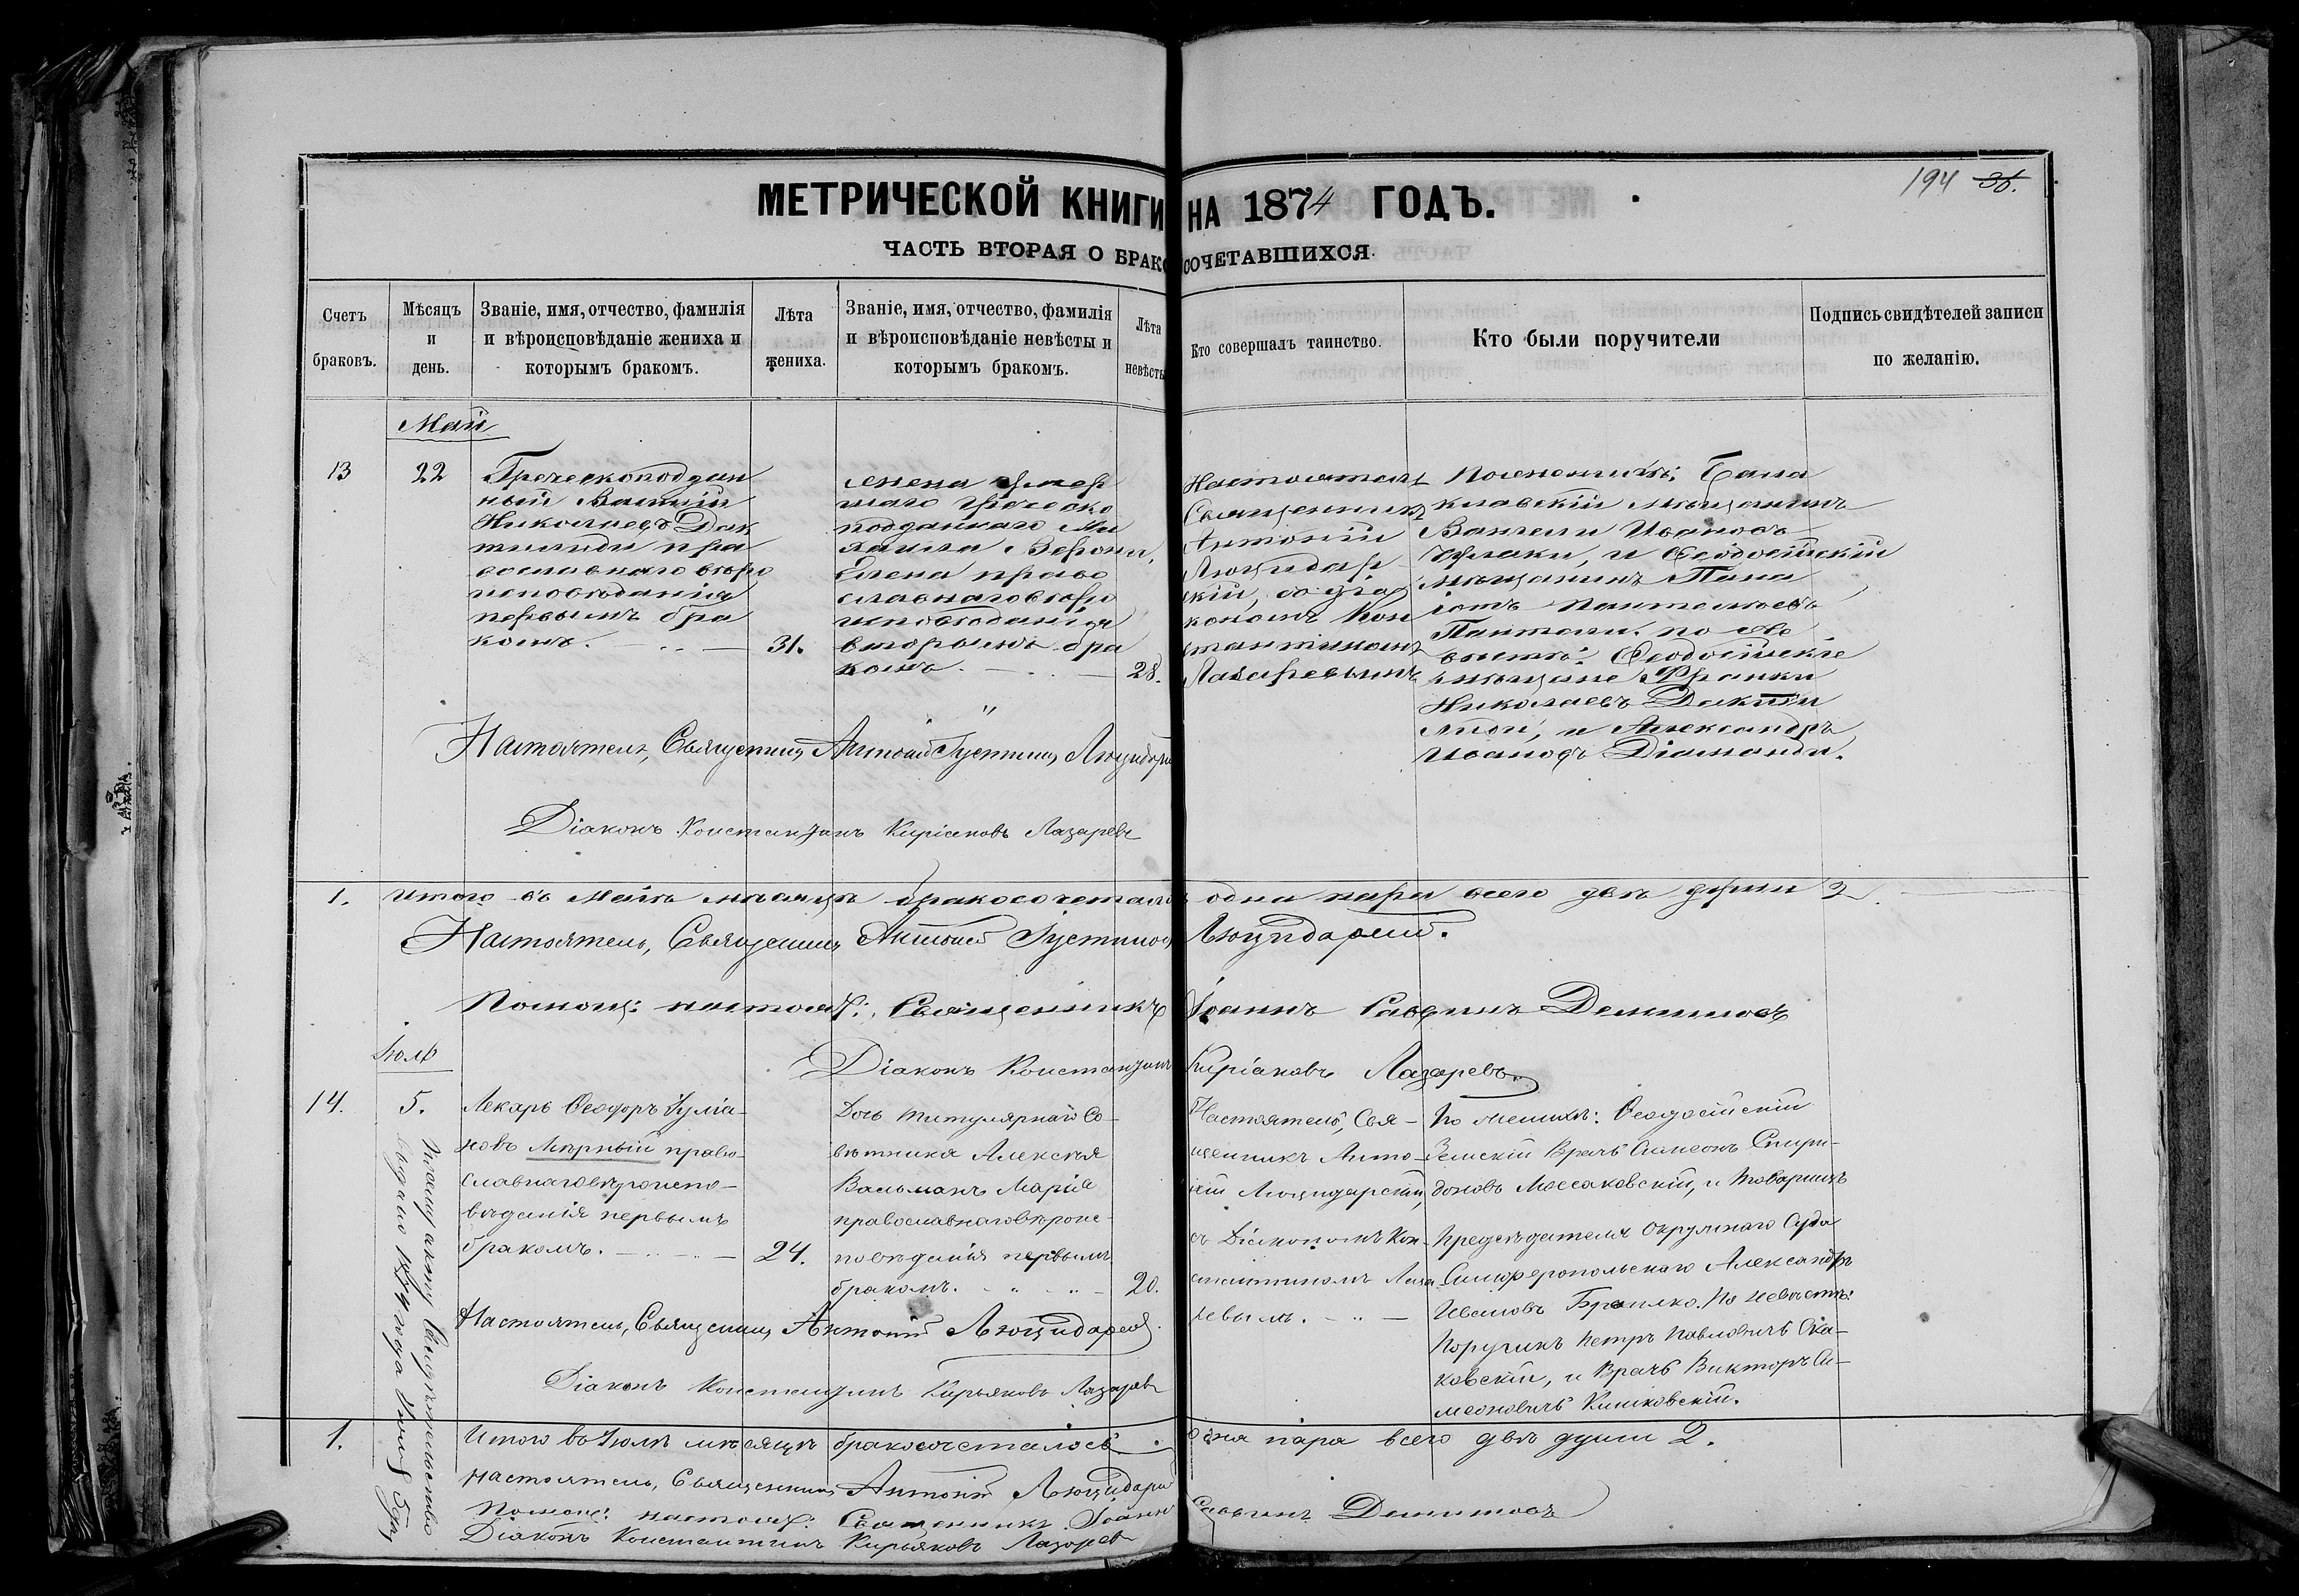 194 36.
МЕТРИЧЕСКОЙ КНИГИ НА 1874 ГОДЪ.
ЧАСТЬ ВТОРАЯ О БРАКОСОЧЕТАВШИХСЯ.
Счетъ браковъ.
Мѣсяцъ и день.
Званіе, имя, отчество, фамилія
и вѣроисповѣданіе жениха и
которымъ бракомъ.
Лѣта
жениха.
Званіе, имя, отчество, фамилія
и вѣроисповѣданіе невѣсты и
которымъ бракомъ.
Лѣта
невѣсты
Кто совершалъ таинство.
Кто были поручители
Подпись свидѣтелей записи
по желанію.
Май
13
22
Греческоподдан
ный
Николаевъ Дак
тилиди пра
вославнаго вѣро
исповѣданія
первымъ бра
комъ.
31.
жена умер
шаго греческо
подданнаго Ми
хаила
Елена право
славнаго вѣро
исповѣданія
вторымъ бра
комъ.
28.
Настоятель
Священникъ
Антоній
Люцидар
скій, съ діа
кономъ Кон
стантиномъ
Лазаревымъ
По женихѣ: Бала
клавскій мѣщанинъ
Вангели Ивановъ
и Ѳеодосійскій
мѣщанинъ Пана
іотъ Пантелѣевъ
по не
вѣстѣ: Ѳеодосійскіе
мѣщане
Николаевъ Дакти
лиди, и Александръ
Ивановъ Діаманди.
Настоятель, Священникъ Антоній Іустиновъ
Діаконъ Константинъ Киріаковъ Лазаревъ
1. Итого въ Маѣ мѣсяцѣ бракосочеталось одна пара всего двѣ души 2.
Настоятель, Священникъ Антоній Іустиновъ Люцидарскій.
Помощ: настоят: Священникъ Іоаннъ Саввинъ Демидовъ
Діаконъ Константинъ Киріаковъ Лазаревъ.
Іюль
14.
5.
Лекарь Ѳеодоръ Іуліа-
новъ Мѣрный право-
славнаго вѣроиспо-
вѣданія первымъ
бракомъ.
24.
Дочь титулярнаго Со-
вѣтника Алексѣя
Вальманъ Марія
православнаго вѣроис-
повѣданія первымъ
бракомъ.
20.
Настоятель, Свя-
щенникъ Анто-
ній Люцидарскій,
съ Діакономъ Кон-
стантиномъ Лаза-
ревымъ.
По женихѣ: Ѳеодосійскій
Земскій Врачъ Симеонъ Спири-
доновъ Массаковскій, и Товарищъ
Предсѣдателя Окружнаго Суда
Симферопольскаго Александръ
Ивановъ По невѣстѣ:
Поручикъ Петръ Павловичъ Ска-
ковскій, и Врачъ Викторъ Си-
меоновичъ
Настоятель, Священникъ Антоній Люцидарскій.
Діаконъ Константинъ Кирьяковъ Лазаревъ
Свидѣтельство
выдано 1874 года Іюля 5 дня
1. Итого въ Іюлѣ мѣсяцѣ бракосочеталось одна пара всего двѣ души 2.
Настоятель, Священникъ Антоній
Помощ: настоят: Священникъ Іоаннъ Саввинъ Демидовъ
Діаконъ Константинъ Кирьяковъ Лазаревъ